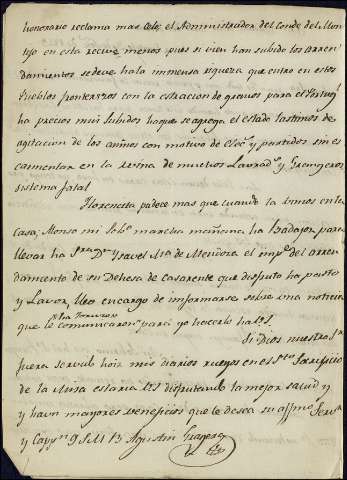 honorario reclama mas Celo; el Administrador del Conde del Mon
tijo en esta recive menos, pues si vien han subido los arren
damientos se deve ha la immensa riqueza que entro en estos
Pueblos fronterizos con la estracion de granos para el Portugl
ha precios mui subidos ha que se agrega el estado lastimoso de
agitacion de los animos con motivo de Elecs y partidos sin es
carmentar en la ruina de muchos Lavrads y Grangeros
sistema fatal
Florencita padece mas que cuando la tuvimos en te
casa; Alonso mi Sobo marcha mañana ha Badajoz para
llevar ha Sra Da Ysavel Ma de Mendoza el impe del arren
damiento de su Dehesa de Casarente que disfruta ha pasto
y Lavor, lleva encargo de informarse sobre una noticia
que le comunicaron para yo hacerlo ha
Si Dios nuestro Sr
fuera servido hoir mis diarios ruegos en el Sto Sacrificio
de la Misa estaria disfrutando la mejor salud y
y havn mayores beneficios que le desea su affmo Servr
y Cappn Q S M B Agustin Grajera